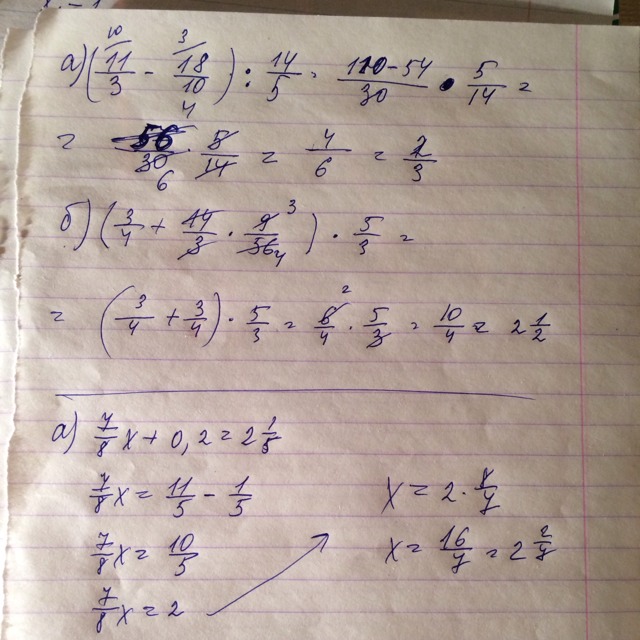 а) (11/3 - 18/10) : 14/5 = 110-54/30 · 5/14 =
= 56/30 · 5/14 = 4/6 = 2/3
б) (3/4 + 14/3 · 9/56) · 5/3 =
= (3/4 + 3/4) · 5/3 = 6/4 · 5/3 = 10/4 = 2 1/2
а) 7/8 x + 0,2 = 2 1/5
7/8 x = 11/5 - 1/5
7/8 x = 10/5
7/8 x = 2
x = 2 · 8/7
x = 16/7 = 2 2/7